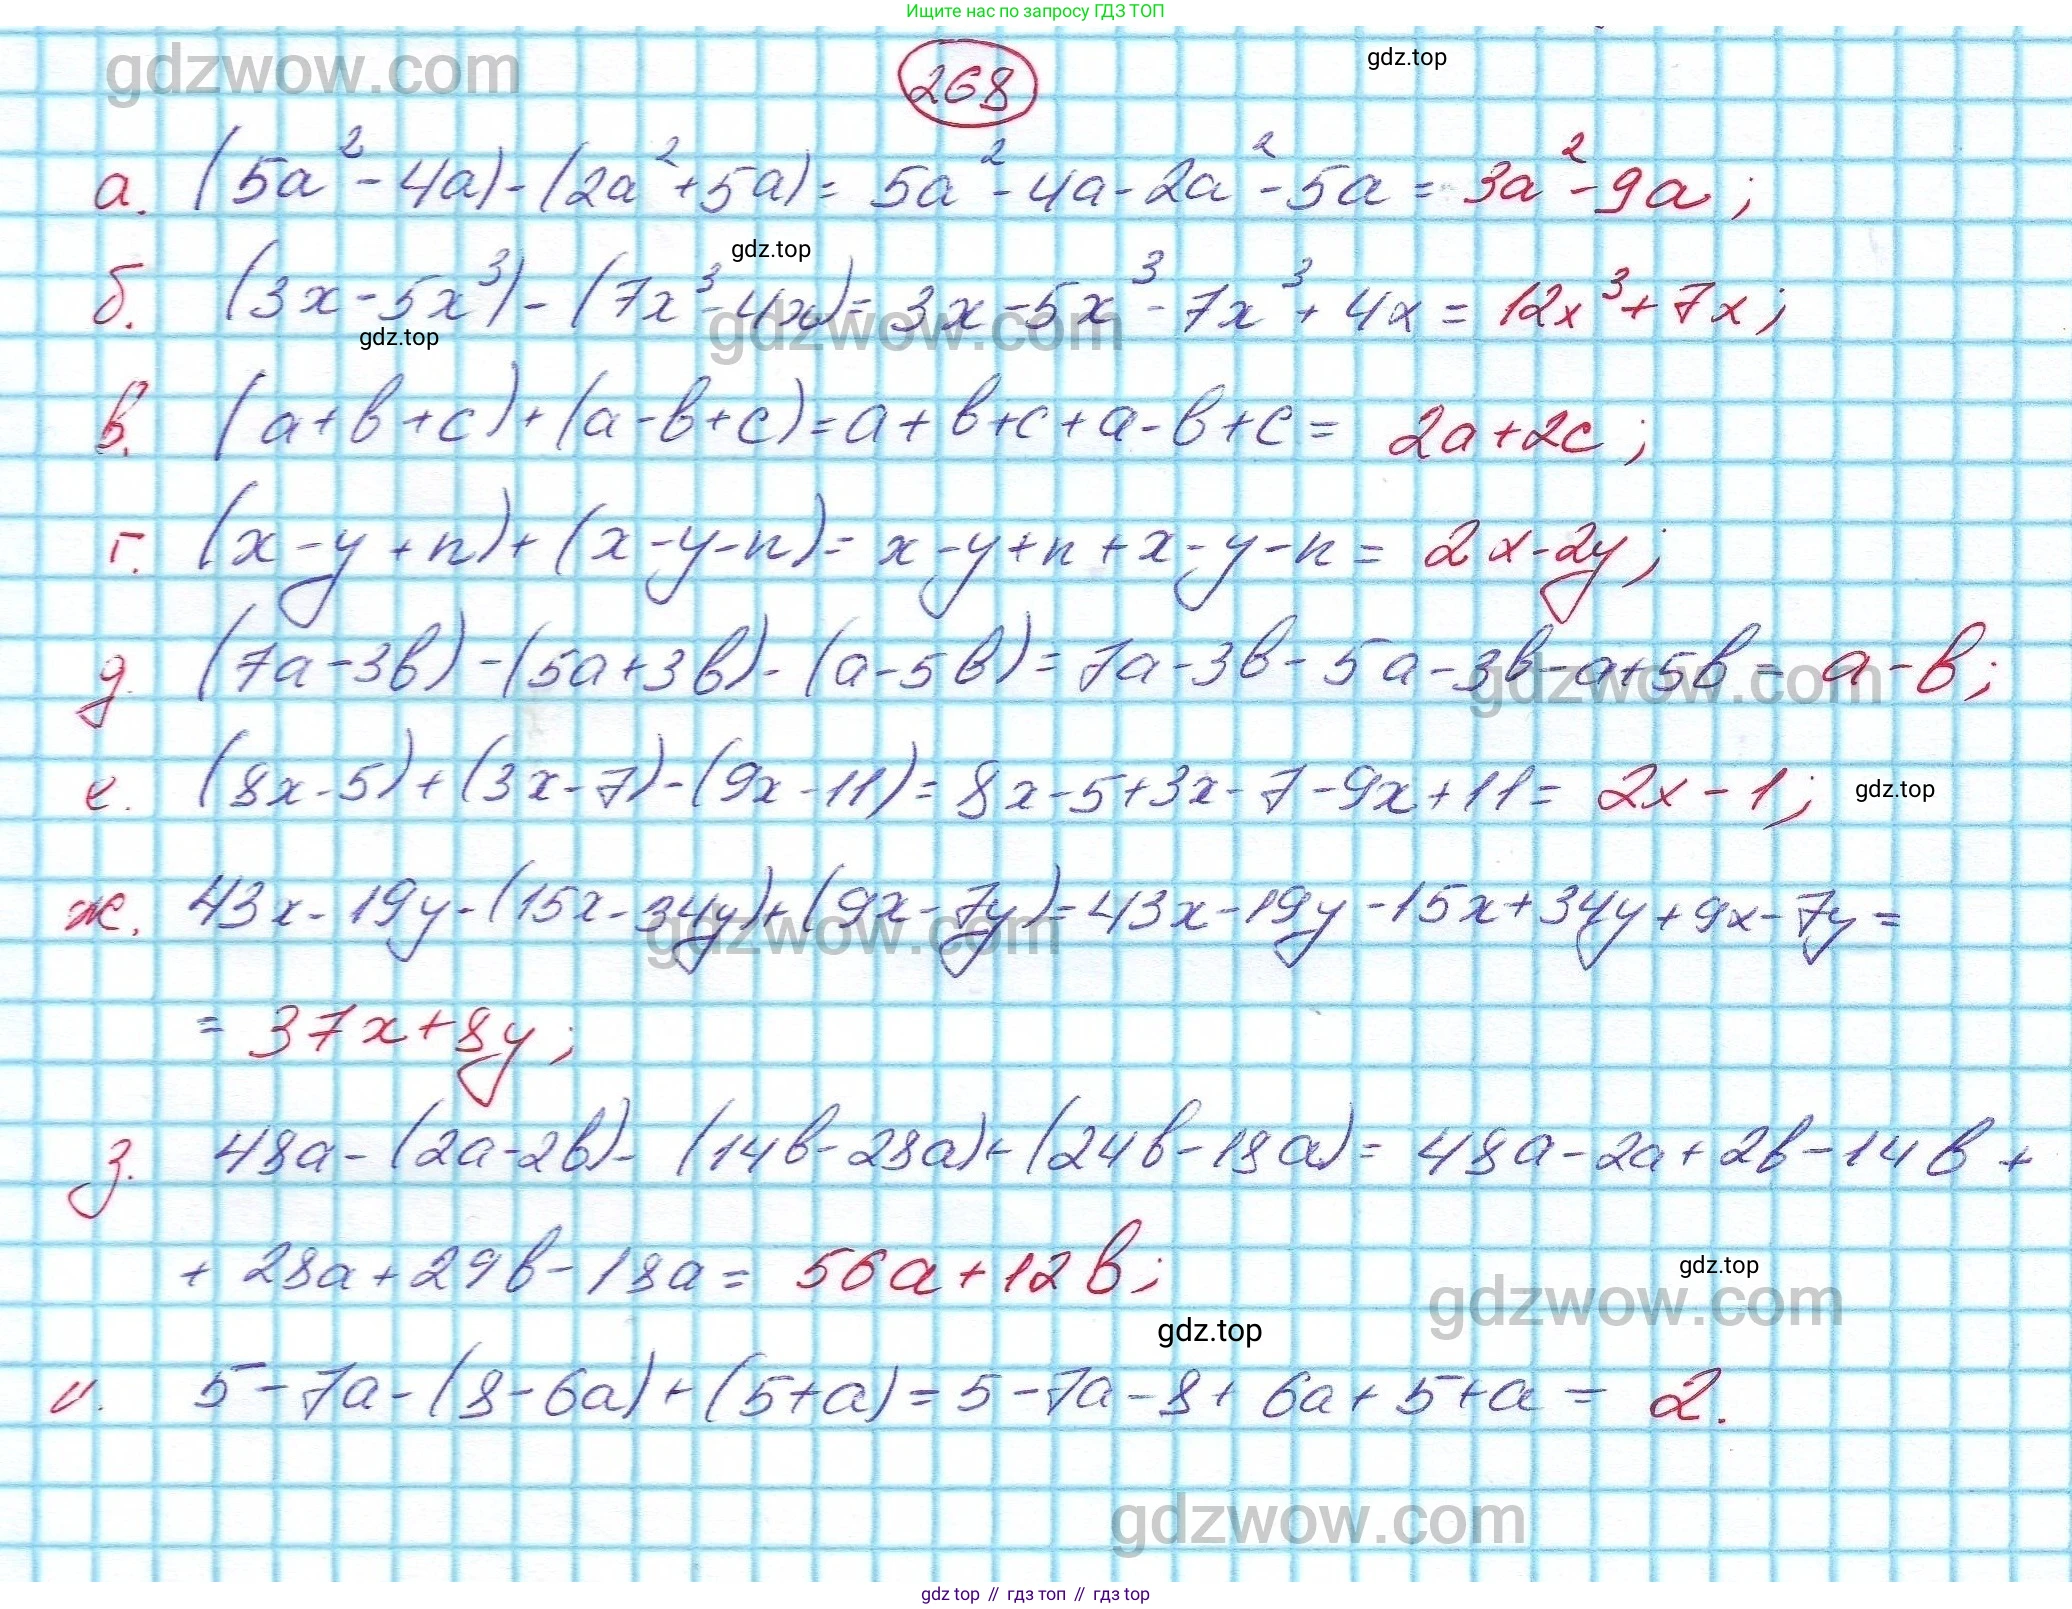 Ищите нас по запросу ГДЗ ТОП
gdzwow.com
268
gdz.top
а. (5a² - 4a) - (2a² + 5a) = 5a² - 4a - 2a² - 5a = 3a² - 9a;
gdz.top
б. (3x - 5x³) - (7x³ - 4x) = 3x - 5x³ - 7x³ + 4x = 12x³ + 7x;
gdzwow.com
gdz.top
в. (a + b + c) + (a - b + c) = a + b + c + a - b + c = 2a + 2c;
г. (x - y + n) + (x - y - n) = x - y + n + x - y - n = 2x - 2y;
д. (7a - 3b) - (5a + 3b) - (a - 5b) = 7a - 3b - 5a - 3b - a + 5b = a - b;
gdzwow.com
е. (8x - 5) + (3x - 7) - (9x - 11) = 8x - 5 + 3x - 7 - 9x + 11 = 2x - 1;
gdz.top
ж. 43x - 19y - (15x - 34y) + (9x - 7y) = 43x - 19y - 15x + 34y + 9x - 7y =
gdzwow.com
= 37x + 8y;
з. 48a - (2a - 2b) - (14b - 28a) + (24b - 18a) = 48a - 2a + 2b - 14b +
+ 28a + 29b - 18a = 56a + 12b;
gdz.top
gdzwow.com
gdz.top
и. 5 - 7a - (8 - 6a) + (5 + a) = 5 - 7a - 8 + 6a + 5 + a = 2.
gdzwow.com
gdz.top // гдз топ // гдз top